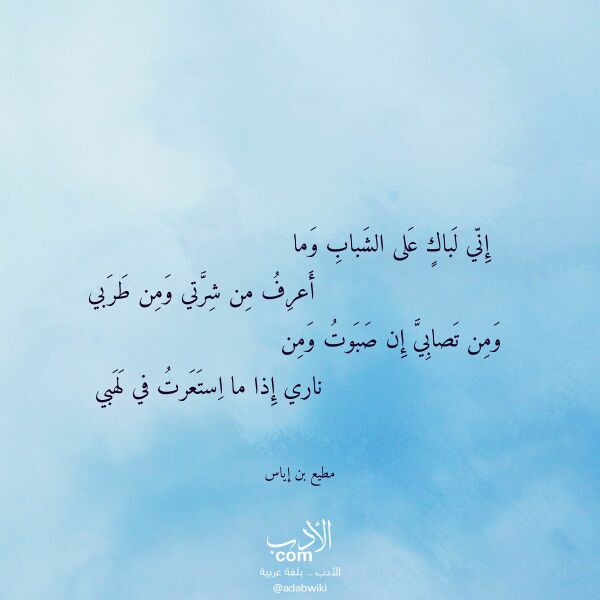 إِنّي لَباكٍ عَلى الشَبابِ وَما
أَعرِفُ مِن شِرَّتي وَمِن طَرَبي
وَمِن تَصابِيَّ إِن صَبَوتُ وَمِن
ناري إِذا ما اِستَعَرتُ في لَهَبي
مطيع بن إياس
الأدب
com
الأدب .. بلغة عربية
@adabwiki